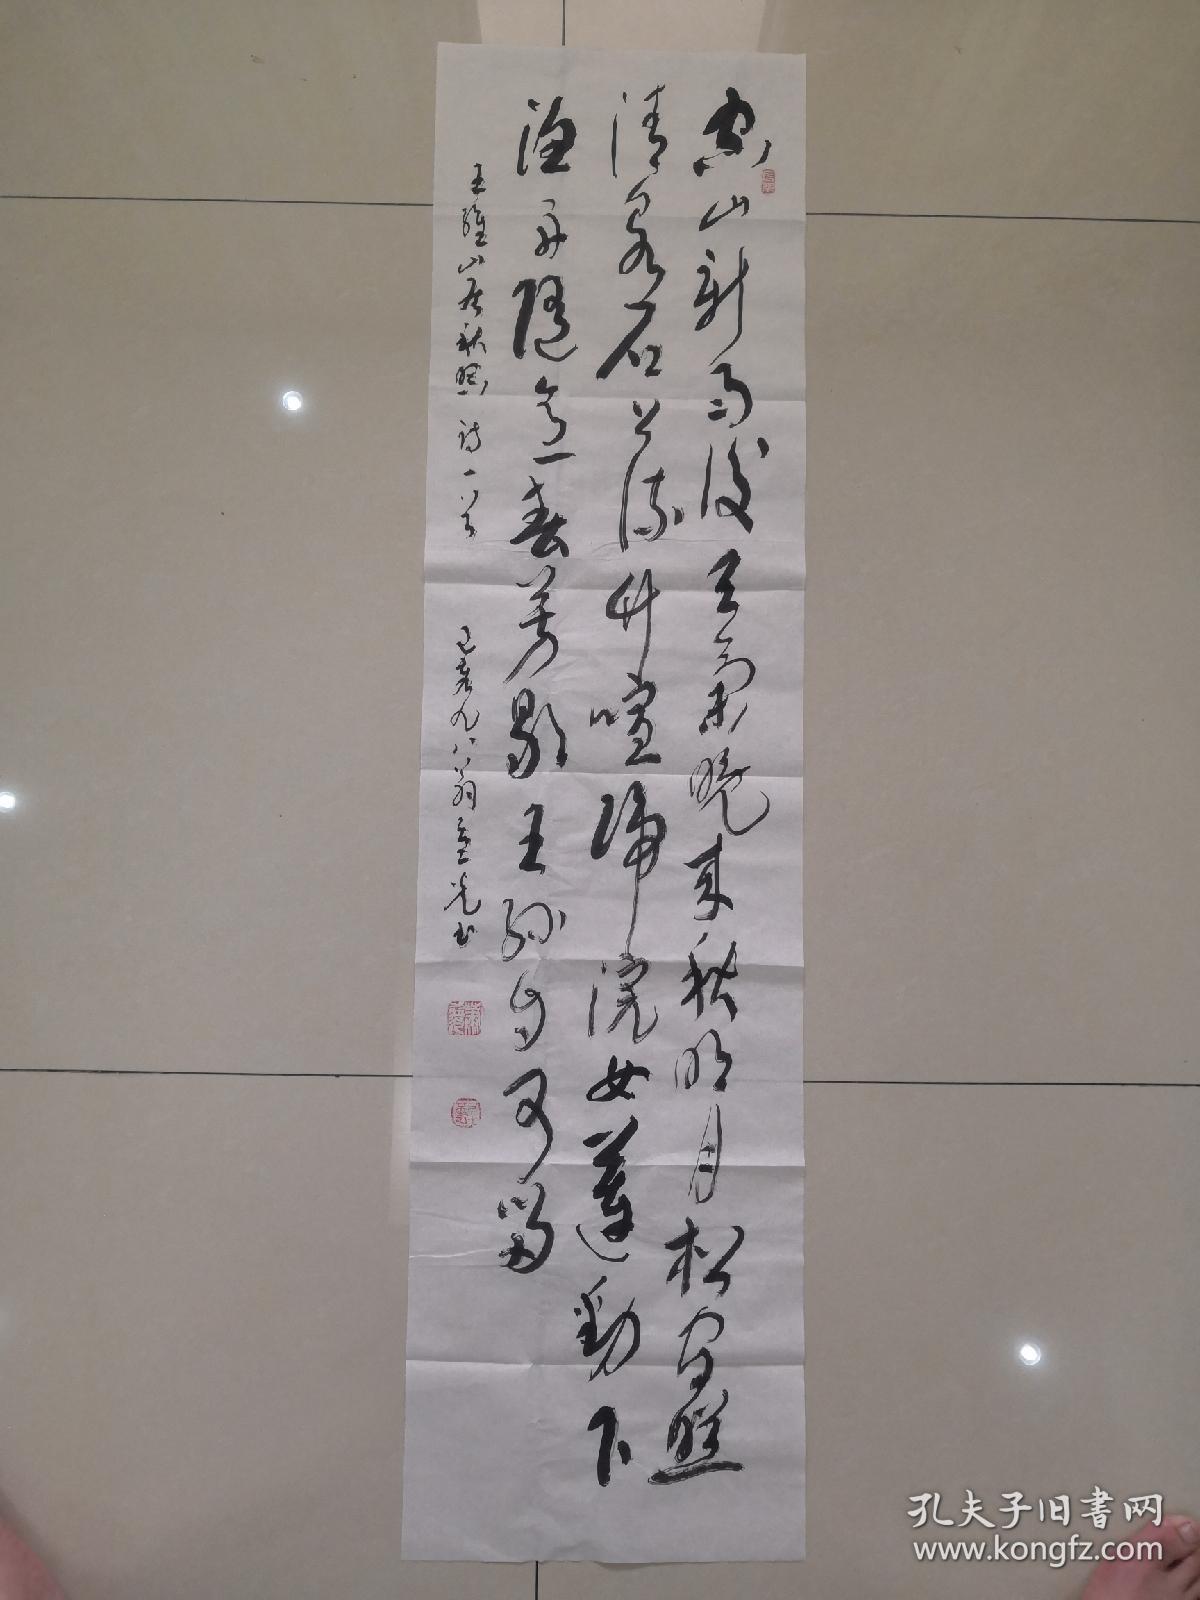 空山新雨後天氣晚来秋明月松间照
清泉石上流竹喧歸浣女蓮動下
漁舟随意春芳歇王孫自可留
王維山居秋暝诗一首 己亥九八翁
孔夫子旧書网
www.kongfz.com